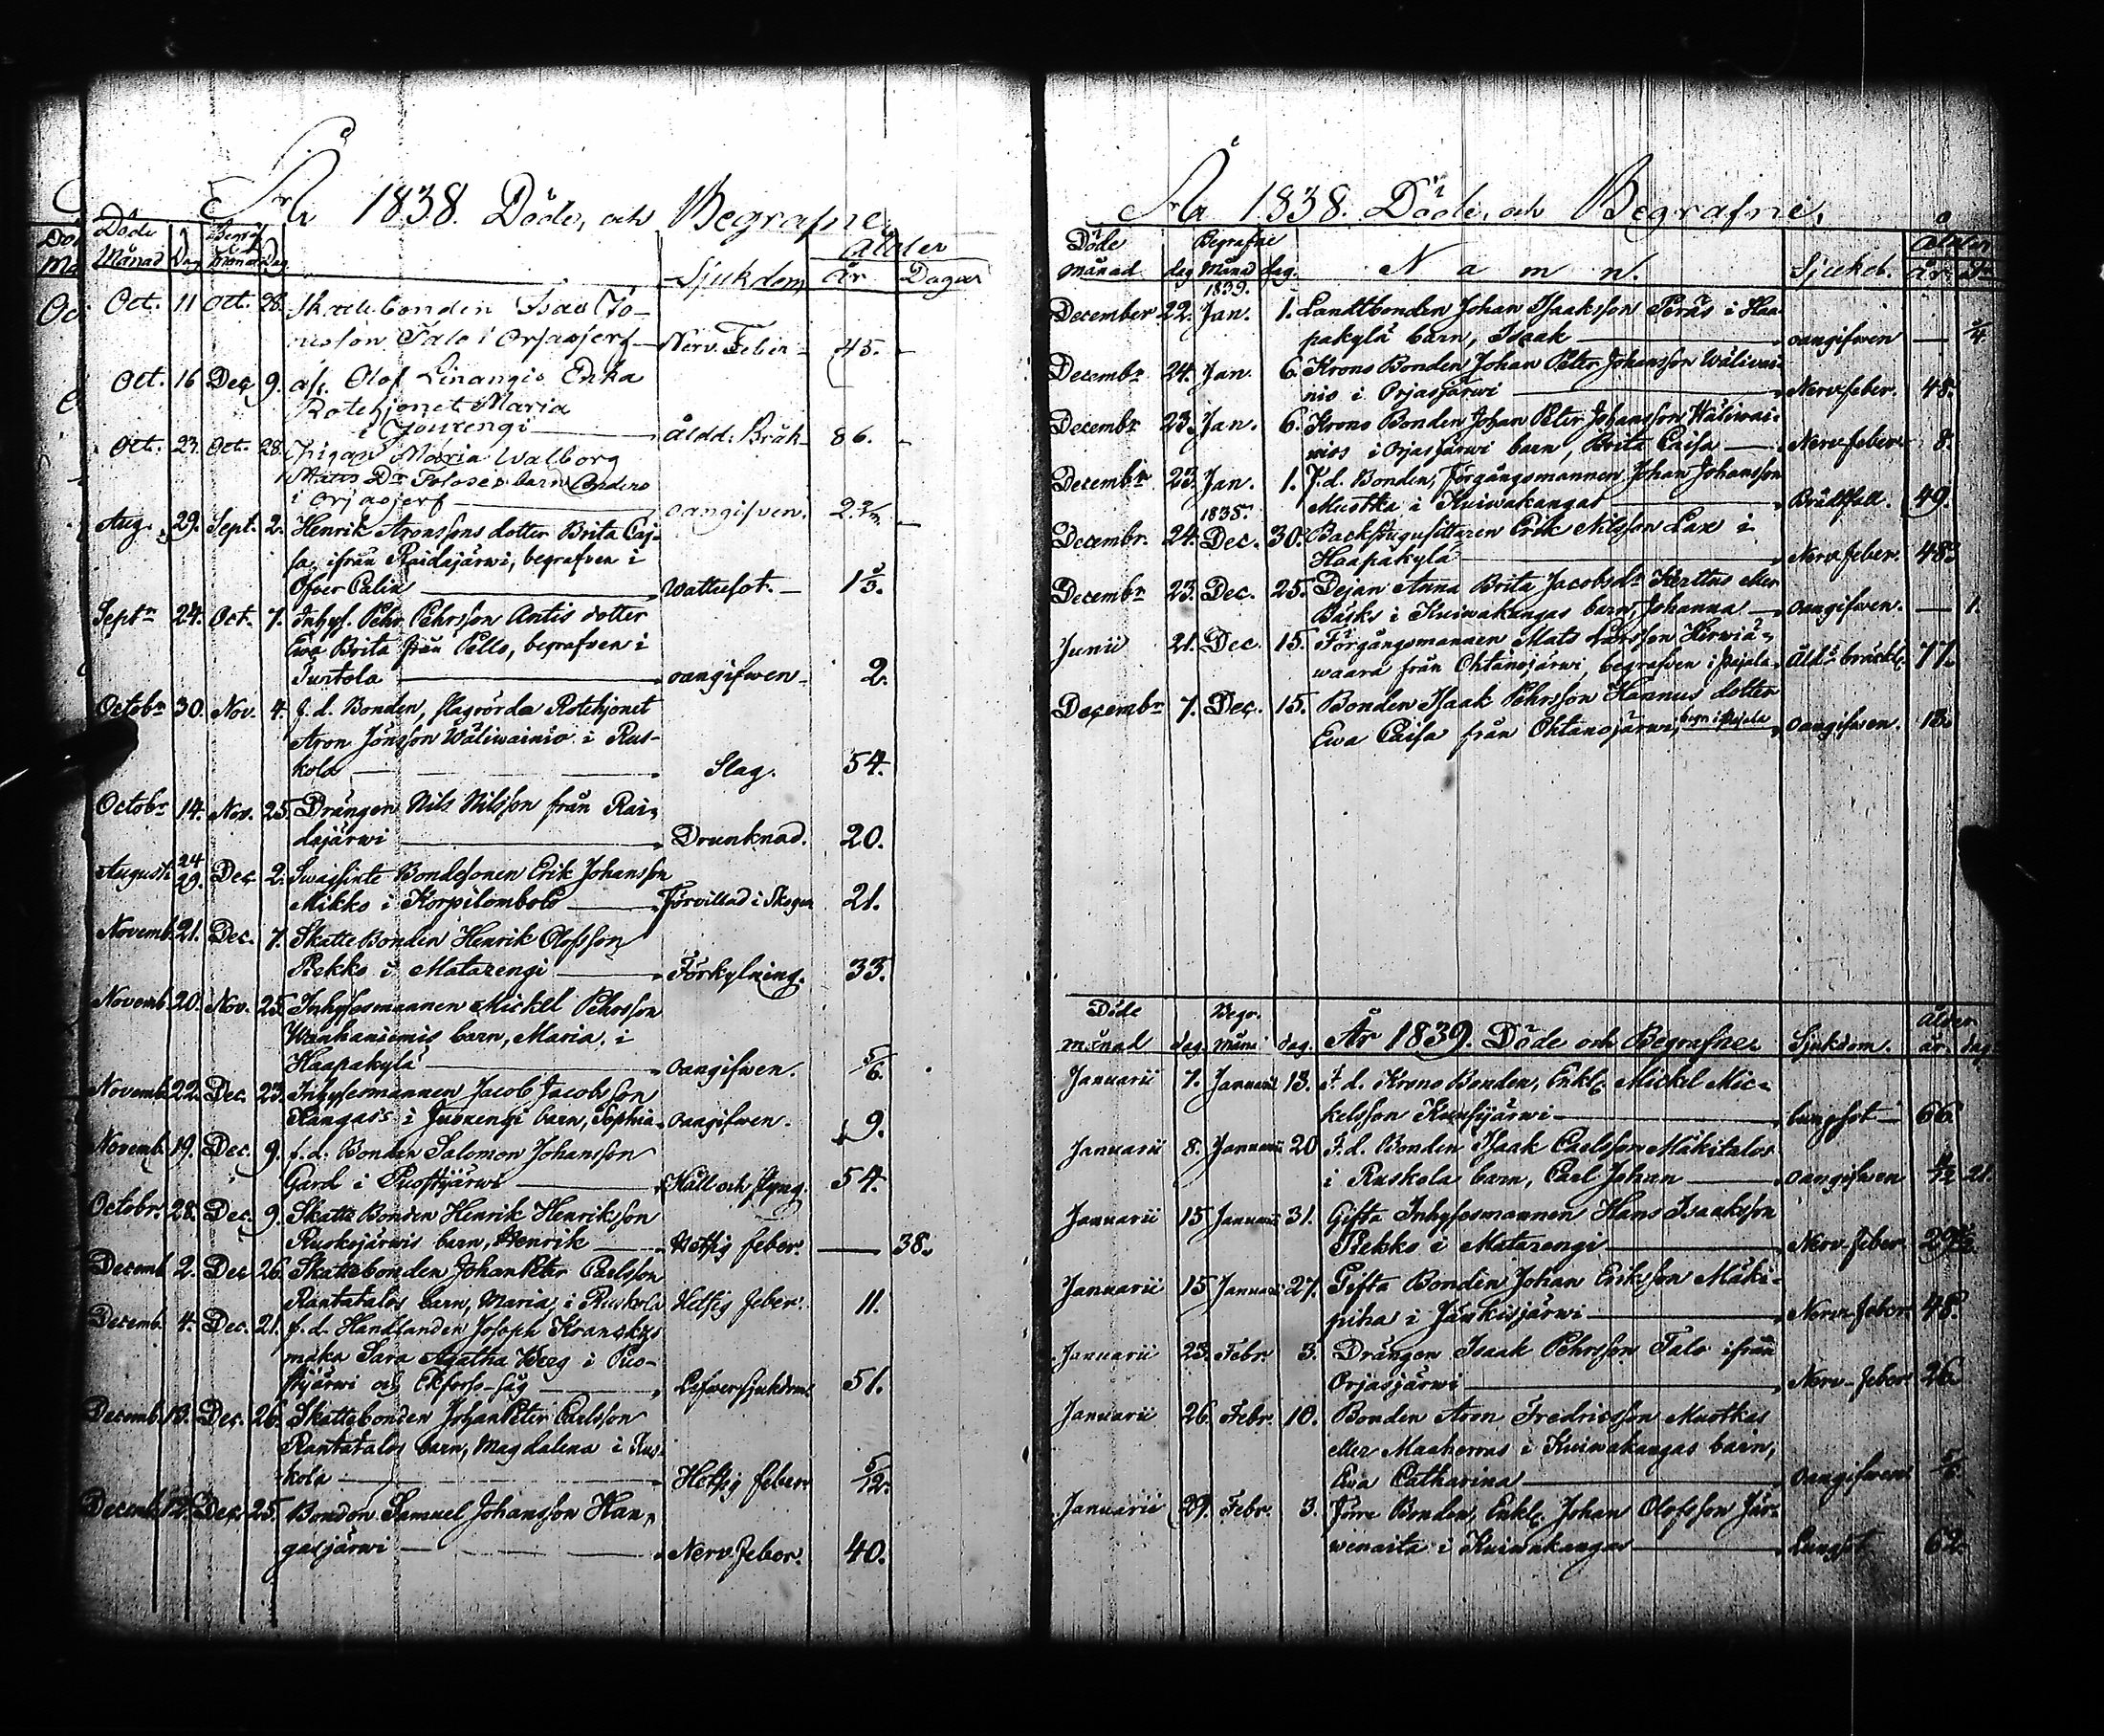 År 1838. Döde, och Begrafne.
Döde Begrafne Ålder
Månad Dag Månad Dag Sjukdom År Dagar
Oct. 11 Oct. 28. Skattebonden Isac Jo-
nisson Talo i Orjasjerf Nerv. Feber 45.
Oct. 16 Dec. 9. afl. Olof Linangis Enka
Rotehjonet Maria
i Jouxengi Åldd. Bräk 86.
Oct. 23. Oct. 28. Pigan Maria Walborg
Mats Dr barn Anders
i Orjasjerf oangifven.
Aug. 29. Sept. 2. Henrik Aronssons dotter Brita Caj-
sa, ifrån Raidajärwi, begrafven i
Öfver Wattusot.
Septr 24. Oct. 7. Inhys. Pehr Pehrsson Antis dotter
Ewa Brita från Pello, begrafven i
Turtola oangifwen 2.
Octobr 30. Nov. 4. f.d. Bonden, slagrörda Rotehjonet
Aron Jönsson Wäliwainio i Rus-
kola Slag. 54.
Octobr 14. Nov. 25. Drängen Nils Nilsson från Rai-
dajärwi Drunknad. 20.
Augusti 24 29. Dec. 2. Swagsinte Bondesonen Erik Johansson
Mikko i Korpilombolo Förvillad i Skogen 21.
Novemb. 21. Dec. 7. Skatte Bonden Henrik Olofsson
Piekko i Matarengi Förkylning. 33.
Novemb. 20. Nov. 25. Inhysesmannen Mickel Pehrsson
Wanhaniemis barn, Maria, i
Haapakylä oangifwen. 5/6.
Novemb. 22. Dec. 23. Inhysesmannen Jacob Jacobsson
Kangas's i Juoxengi barn, Sophia oangifwen. 9.
Novemb. 19. Dec. 9. f.d. Bonden Salomon Johansson
Gard i Puostijärwi Håll och styng. 54.
Octobr. 28. Dec. 9. Skatte Bonden Henrik Henriksson
Ruokojärwis barn, Henrik Hetsig feber. 38.
Decemb. 2. Dec. 26. Skattebonden Johan Peter Carlsson
Rantatalos barn, Maria, i Ruskola Hetsig feber. 11.
Decemb. 4. Dec. 21. f.d. Handlanden Joseph
maka Sara Agatha i Puo-
stijärwi och Ekfors-såg Lefwersjukdom 51.
Decemb. 13. Dec. 26. Skattebonden Johan Peter Carlsson
Rantatalos barn, Magdalena i Rus-
kola Hetsig feber 5/12.
Decemb. 12. Dec. 25. Bonden Samuel Johansson Han-
gasjärwi Nerv. feber. 40.
År 1838. Döde, och Begrafne.
Döde Begrafne Ålder
månad dag Månad dag. Namn. Sjukd. År.
1839.
December 22. Jan. 1. Landtbonden Johan Isaksson Peräs i Haa-
pakylä barn, Isaak oangifwen 3/4.
Decembr 24. Jan. 6. Krono Bonden Johan Peter Johansson Wäliwai-
nio i Orjasjärwi Nerv. feber. 48.
Decembr 23. Jan. 6. Krono Bonden Johan Peter Johansson Wäliwai-
nios i Orjasjärwi barn, Brita Caisa Nerv. feber. 8.
Decembr 23. Jan. 1. F.d. Bonden, Förgångsmannen Johan Johansson
Mustka i Kuiwakangas Bråddöd. 49.
1838.
Decembr. 24. Dec. 30. Backstugusittaren Erik Nilsson Lax i
Haapakylä Nerv. feber. 48.
Decembr 23. Dec. 25. Dejan Anna Brita Jacobsdr Kerttus eller
Bäcks i Kuiwakangas barn, Johanna oangifwen. 1.
Junii 21. Dec. 15. Förgångsmannen Mats Larsson
waara från Ohtanajärwi, begrafven i Pajala Åldr bräckl. 77.
Decembr 7. Dec. 15. Bonden Isaak Pehrsson Hannus dotter
Ewa Caisa från Ohtanajärwi, begr. i Pajala oangifwen. 13.
Döde Begr. Ålder
månad dag månad dag. År 1839. Döde och Begrafne Sjukdom. år. dag.
Januarii 7. Januarii 13. F.d. Krono Bonden, Enkl. Mickel Mic-
kelsson lungsot 66.
Januarii 8. Januarii 20 F.d. Bonden Isaak Carlsson Mäkitalos
i Ruskola barn, Carl Johan oangifwen 21.
Januarii 15 Januarii 31. Gifta Inhysesmannen Hans Isaaksson
Piekko i Matarengi Nerv. feber
Januarii 15 Januarii 27. Gifta Bonden Johan Eriksson Mäki-
piha i Jänkisjärwi Nerv. feber 48.
Januarii 23. Febr. 3. Drängen Isaak Pehrsson Talo ifrån
Orjasjärwi Nerv. feber 26.
Januarii 26. Febr. 10. Bonden Aron Fredricsson Mustkas
eller Maaherras i Kuiwakangas barn,
Ewa Catharina oangifwen
Januarii 29. Febr. 3. Förre Bonden, Enkl. Johan Olofsson Jär-
wenaita i Kuiwakangas Lungsot 62.